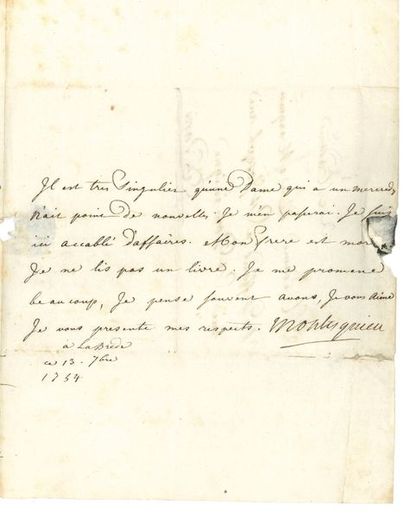 Il est tres singulier qu'une Dame qui a un mercredy
n'ait point de nouvelles. Je m'en passerai. Je suis
ici accablé d'affaires. Mon frere est mort
Je ne lis pas un livre. Je me promene
beaucoup, Je pense souvent avous, Je vous aime
Je vous presente mes respects. Montesquieu
a LaBrède
ce 13. 7bre
1754